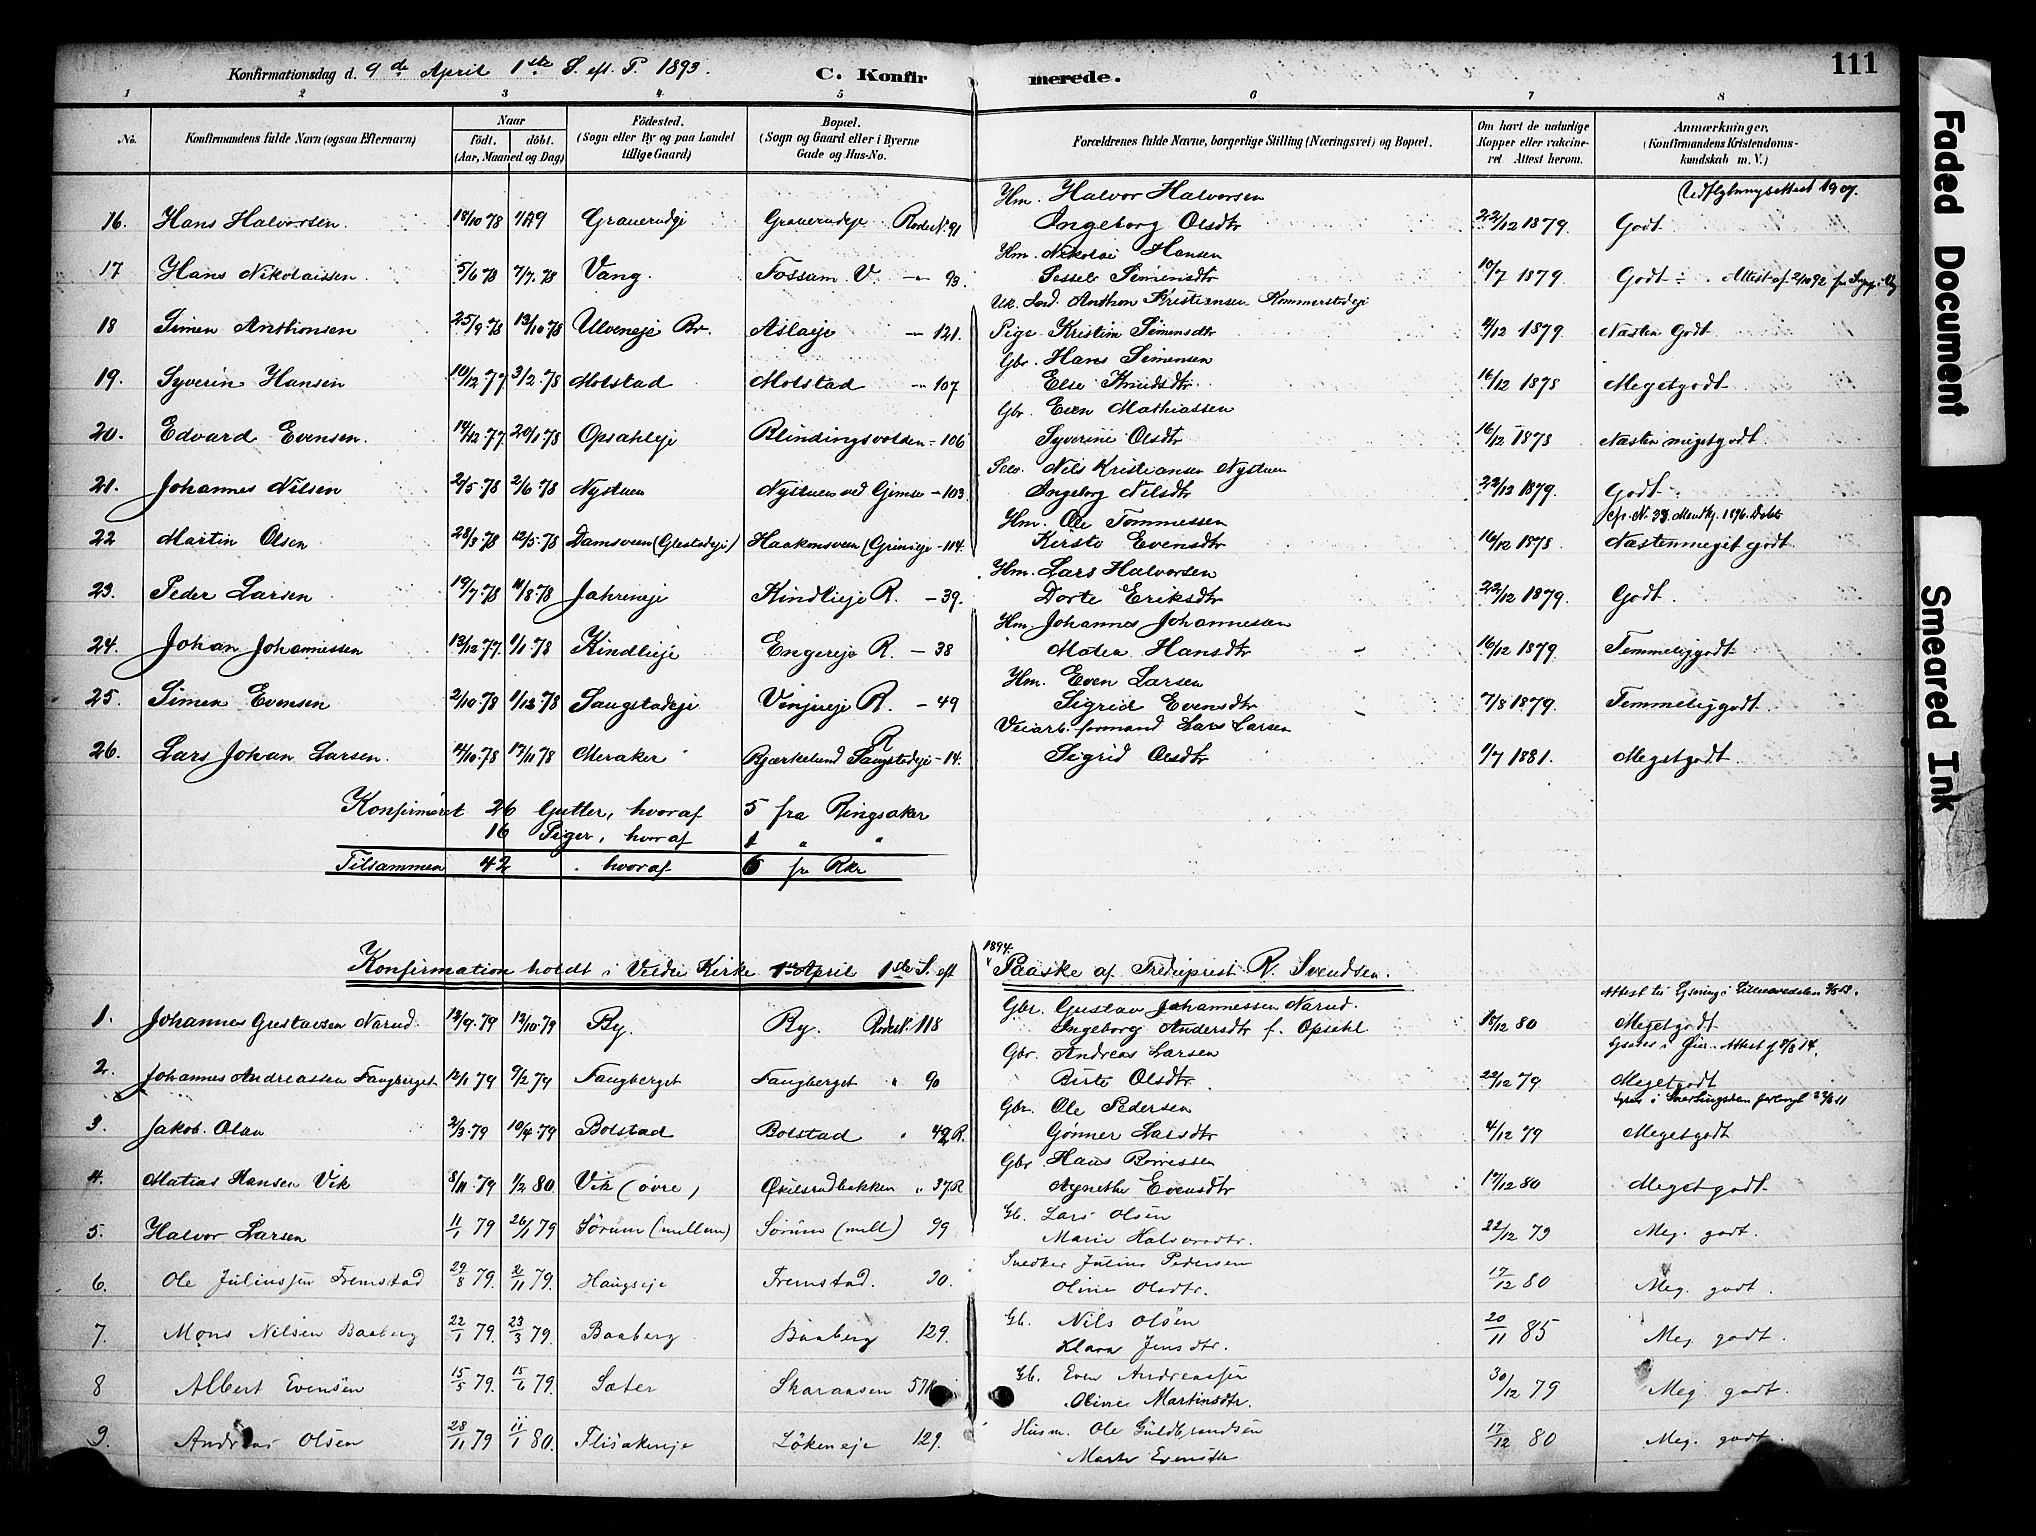 Konfirmationsdag d. 9de April 1ste S. eft. P. 1893.
C. Konfirmerede.
111
1 2 3 4 5 6 7 8
No.
Konfirmandens fulde Navn (ogsaa Efternavn)
Naar
födt. döbt.
(Aar, Maaned og Dag)
Födested.
(Sogn eller By og paa Landet
tillige Gaard)
Bopæl.
(Sogn og Gaard eller i Byerne
Gade og Hus-No.
Forældrenes fulde Navne, borgerlige Stilling (Næringsvei) og Bopæl.
Om havt de naturlige
Kopper eller vakcine-
ret Attest herom.
Anmærkninger.
(Konfirmandens Kristendoms-
kundskab m. V.)
Hm. Halvor Halvorsen Udflytningsattest 1907.
16. Hans Halvorsen. 18/10 78 Graverudeje Graverudeje Rode N. 91 Ingeborg Olsdtr 22/12 1879. Godt.
Hm. Nikolai Hansen
17 Hans Nikolaissen. 5/6 78 7/7. 78 Vang. Fossum V. - 93. Sessele Simensdtr 10/7 1879 Godt
Anthon Kristiansen
18 Simen Anthonsen 25/9.78 13/10.78 Ulveneje Br. Aslaeje - 121. Pige Kristine Simensdtr 4/12 1879. Næsten Godt
Gbr. Hans Simensen
19. Syverin Hansen 10/12.77 3/2.78 Molstad Molstad - 107 Else Knudsdtr. 16/12 1878 Megetgodt
Gbr. Even Mathiassen
20. Edvard Evensen. 14/12.77 20/1.78 Opsahleje Blindingsvolden - 106 Syverine Olsdtr 16/12 1878 Næsten megetgodt.
Selv. Nils Kristiansen Nystuen
21. Johannes Nilsen 2/5.78 2/6 78 Nystuen Nystuen ved Gimse - 103. Ingeborg Nilsdtr 22/12 1879. Godt
Hm. Ole Tommessen
22 Martin Olsen 28/3.78 12/5.78 Damsveen (Glestadeje) Haakonsveen (Grimeje - 114. Kirsti Evensdtr 16/12 1878 Næstenmeget godt.
Hm. Lars Halvorsen
23. Peder Larsen 19/7.78 11/8.78 Jahreneje Kindlieje R. - 39. Dorte Eriksdtr 22/12 1879. Godt.
Hm. Johannes Johannessen
24. Johan Johannessen 13/12.77. 1/1 78 Kindlieje Engereje R. - 38 Matea Hansdtr 16/12 1879. Temmeliggodt
Hm. Even Larsen
25. Simen Evensen 2/10.78 1/12.78 Saugstadeje Vinjueje R. - 49 Sigrid Evensdtr 7/8 1879. Temmeliggodt.
Veiarb. formand Lars Larsen
26. Lars Johan Larsen. 14/10.78 17/11 78 Meraker Bjærkelund Saugstadeje R - 14. Sigrid Olsdtr 1/7 1881. Megetgodt.
Konfirmeret 26 Gutter, hvoraf 5 fra Ringsaker
16 Piger, hvoraf 1 " "
Tilsammen 42 . hvoraf 6 fr Rkr
Konfirmation holdt i Veldre Kirke 1ste April 1ste S. eft 1894. Paaske af Trediprest R. Svendsen.
Gbr. Gustav Johannessen Narud.
1. Johannes Gustavsen Narud. 13/9.79 12/10 79 By. By. Rodes N. 118 Ingeborg Andersdtr f. Opsehl 15/12 80 Megetgodt
Gbr. Andreas Larsen
2. Johannes Andreassen Faugberget 12/1 79 9/2 79 Faugberget Faugberget " 90 Birte Olsdtr. 22/12 79 Megetgodt
Gbr. Ole Pedersen
3. Jakob. Olsen 2/3.79 10/4.79 Bolstad Bolstad " 42 R. Gønner Larsdtr 4/12 79 Megetgodt
Gbr Hans Børressen
4. Matias Hansen Vik 8/11.79 1/2 80. Vik (øvre) Økilsrudbakken " 37 R Agnethe Evensdtr 17/12 80 Megetgodt
Gb. Lars Olsen
5. Halvor Larsen 11/1 79 26/1 79 Sörum (mellem) Sörum (mell) 99 Marie Halvorsdtr. 22/12 79 Meg. godt.
Snedker Julius Pedersen
6. Ole Juliussen Fremstad 29/8 79. 2/11 79. Haugseje Fremstad. 90. Oline Olsdtr. 17/12 80 Meg. godt.
Gb. Nils Olsen
7. Mons Nilsen Baaberg 22/1 79. 23/3 79. Baaberg Baaberg 129. Klara Jensdtr. 20/11 85 Meg. godt.
Gb. Even Andreassen
8 Albert Evensen 15/5 79. 15/6 79. Sater Skaraasen 57 Oline Martinsdtr. 30/12 79 Meg. godt.
Husm. Ole Guldbrandsen
9. Andreas Olsen 28/11 79 11/1 80. Flisakereje Lökeneje 129. Marte Evensdtr 17/12 80 Meg. godt.
Faded Document
Smeared Ink